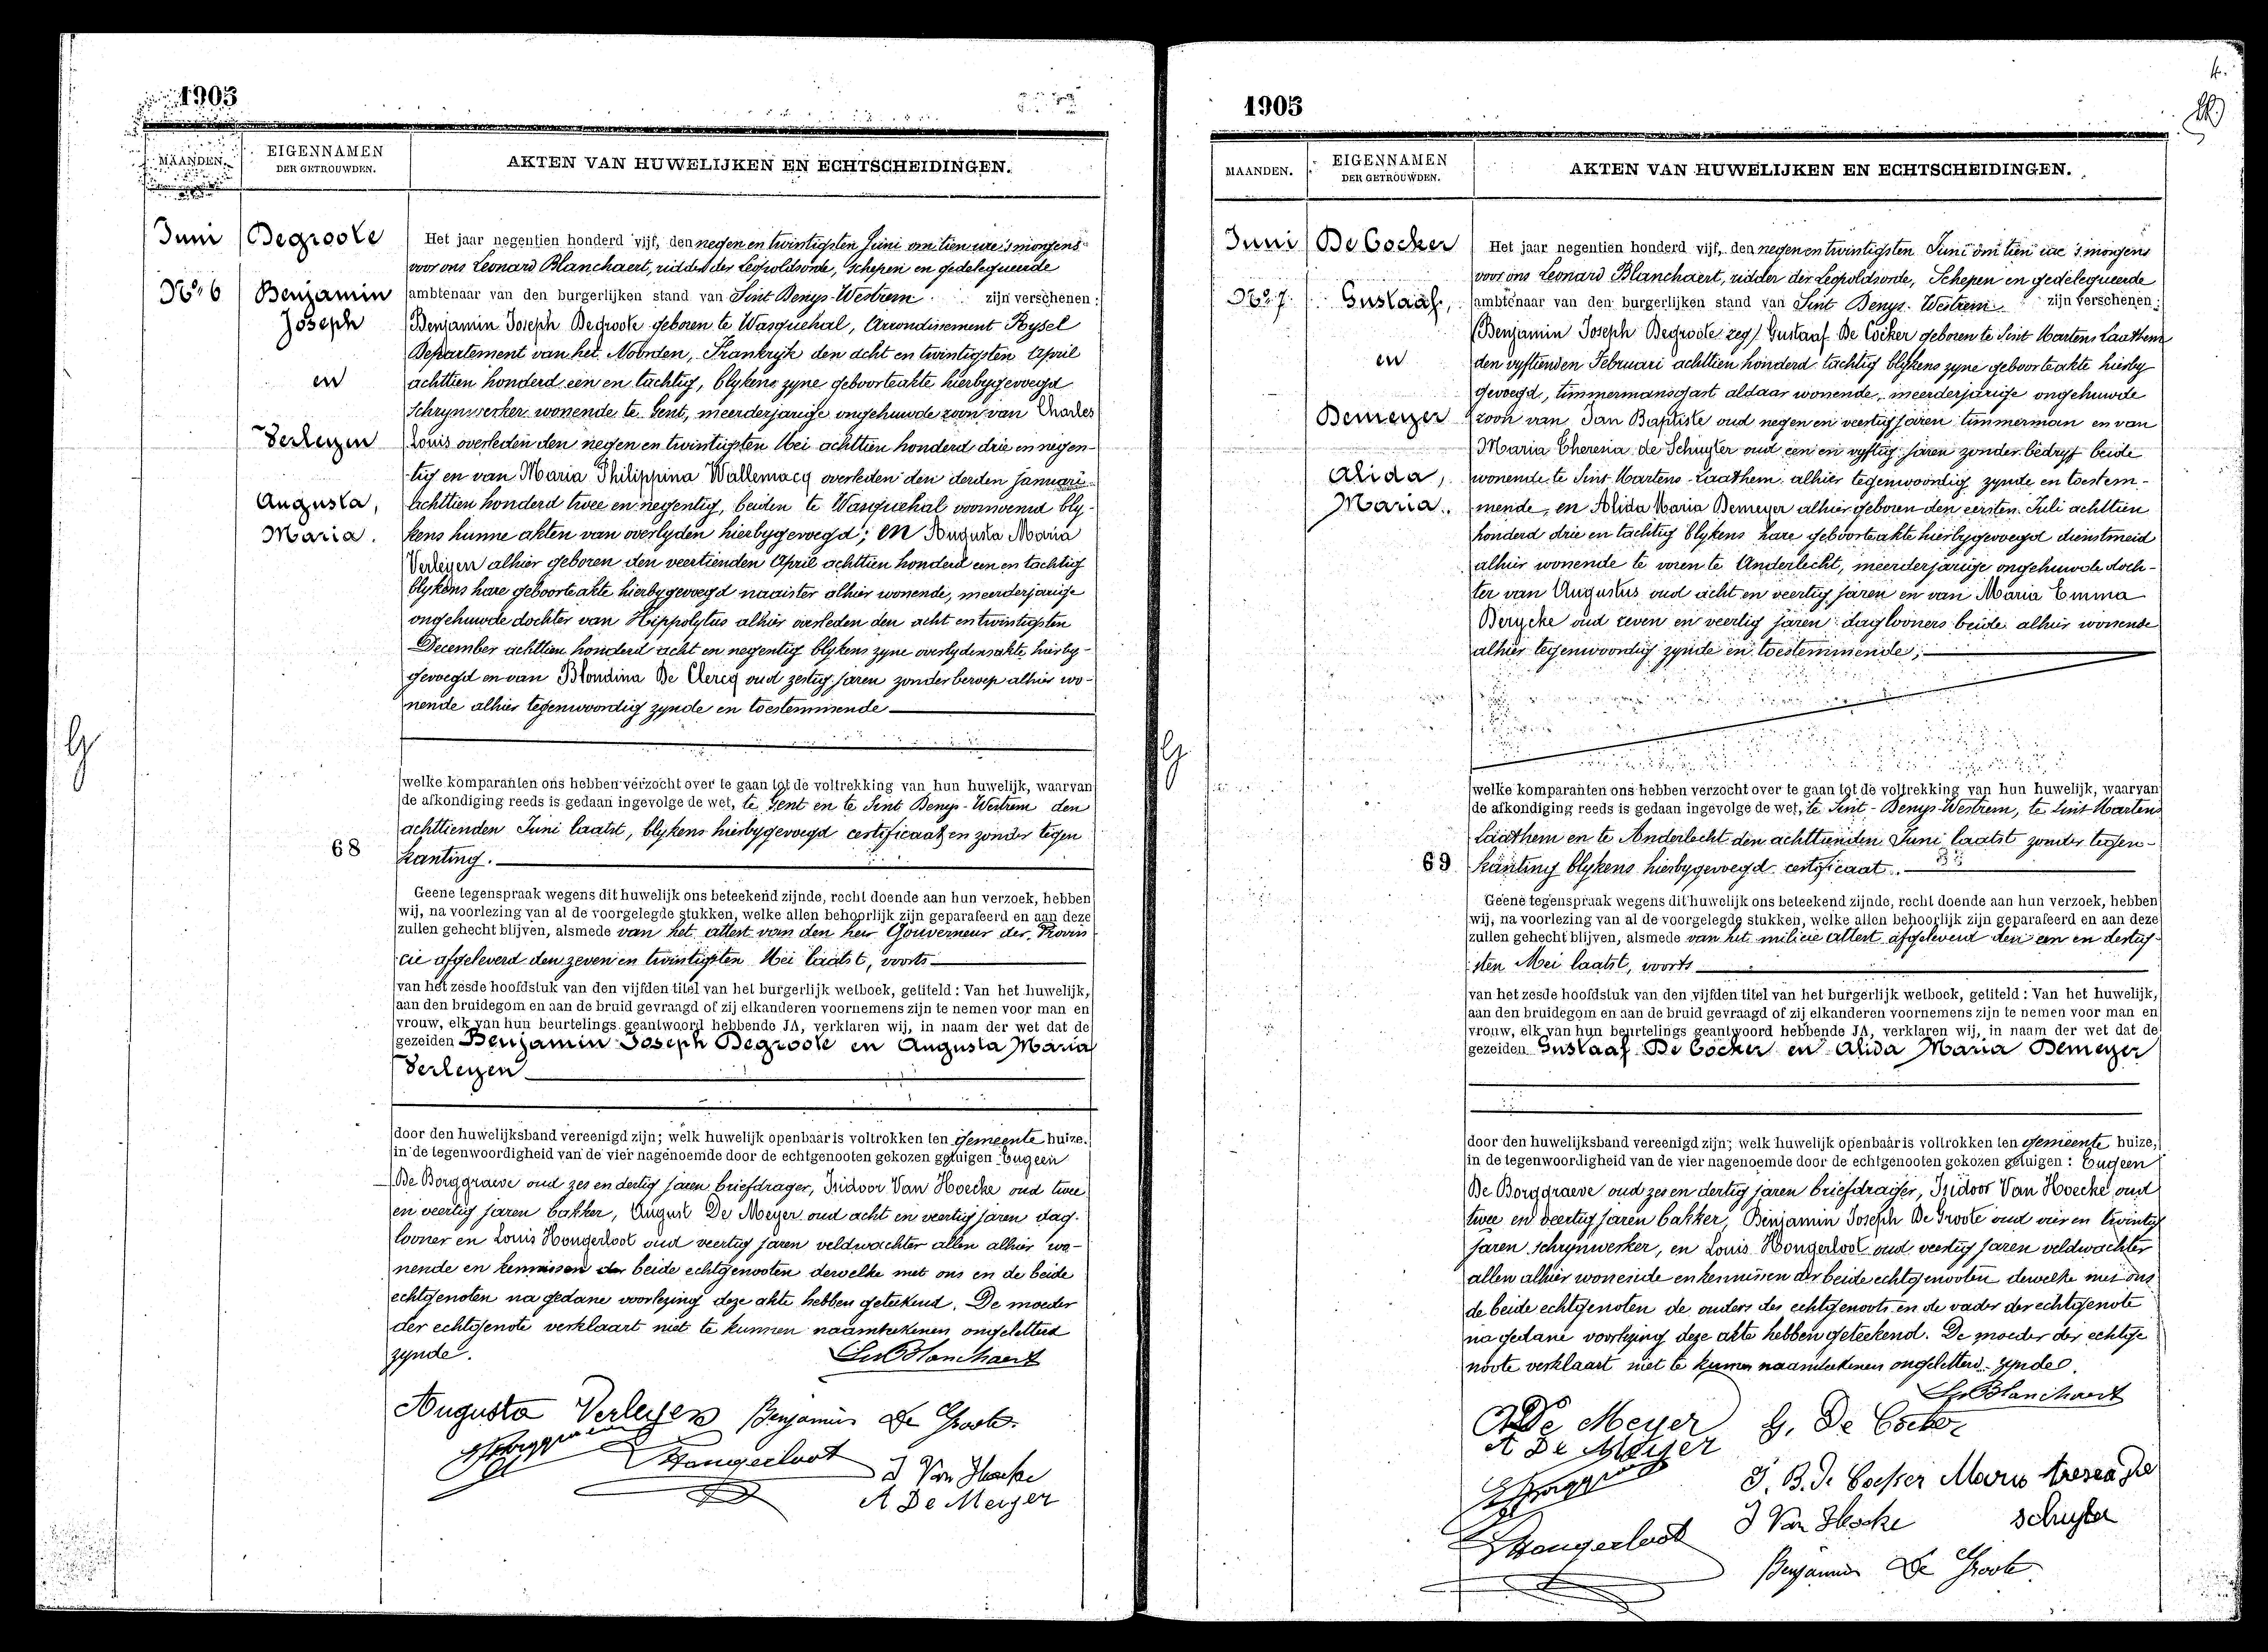 1905
MAANDEN.
EIGENNAMEN
DER GETROUWDEN.
AKTEN VAN HUWELIJKEN EN ECHTSCHEIDINGEN.
Juni
Degroote
No. 6
Benjamin
Joseph
en
Verleyen
Augusta,
Maria.
Het jaar negentien honderd vijf, den negen en twintigsten Juni om tien ure 's morgens
voor ons Leonard Blanchaert, ridder der Leopoldsorde, Schepen en gedelegueerde
ambtenaar van den burgerlijken stand van Sint Denys-Westrem zijn verschenen:
Benjamin Joseph Degroote geboren te Wasquehal, Arrondisement Rysel
Departement van het Noorden, Frankryk den acht en twintigsten April
achttien honderd een en tachtig, blykens zyne geboorteakte hierbygevoegd
Schrynwerker wonende te Gent, meerderjarige ongehuwde zoon van Charles
Louis overleden den negen en twintigsten Mei achttien honderd drie en negen-
tig en van Maria Philippina Wallemacq overleden den derden Januari
achttien honderd twee en negentig, beiden te Wasquehal voornoemd bly-
kens hunne akten van overlyden hierbygevoegd; en Augusta Maria
Verleyen alhier geboren den veertienden April achttien honderd een en tachtig
blykens hare geboorteakte hierbygevoegd naaister alhier wonende, meerderjarige
ongehuwde dochter van Hippolytus alhier overleden den acht en twintigsten
December achttien honderd acht en negentig blykens zyne overlydensakte hierby-
gevoegd en van Blondina De Clercq oud zestig jaren zonder beroep alhier wo-
nende alhier tegenwoordig zynde en toestemmende
welke komparanten ons hebben verzocht over te gaan tot de voltrekking van hun huwelijk, waarvan
de afkondiging reeds is gedaan ingevolge de wet, te Gent en te Sint Denys-Westrem den
achttienden Juni laatst, blykens hierbygevoegd certificaat en zonder tegen
68
kanting.
Geene tegenspraak wegens dit huwelijk ons beteekend zijnde, recht doende aan hun verzoek, hebben
wij, na voorlezing van al de voorgelegde stukken, welke allen behoorlijk zijn geparafeerd en aan deze
zullen gehecht blijven, alsmede van het attest van den heer Gouverneur der Provin
cie afgeleverd den zeven en twintigsten Mei laatst, voorts
van het zesde hoofdstuk van den vijfden titel van het burgerlijk wetboek, getiteld: Van het huwelijk,
aan den bruidegom en aan de bruid gevraagd of zij elkanderen voornemens zijn te nemen voor man en
vrouw, elk van hun beurtelings geantwoord hebbende JA, verklaren wij, in naam der wet dat de
gezeiden Benjamin Joseph Degroote en Augusta Maria
Verleyen
door den huwelijksband vereenigd zijn; welk huwelijk openbaar is voltrokken ten gemeente huize,
in de tegenwoordigheid van de vier nagenoemde door de echtgenooten gekozen getuigen Eugeen
De Borggraeve oud zes en dertig jaren briefdrager, Isidoor Van Hoecke oud twee
en veertig jaren bakker, August De Meyer oud acht en veertig jaren dag-
looner en Louis Hongerloot oud veertig jaren veldwachter allen alhier wo-
nende en kennissen der beide echtgenooten dewelke met ons en de beide
echtgenoten na gedane voorlezing deze akte hebben geteekend. De moeder
der echtgenote verklaart niet te kunnen naamteekenen ongeletterd
zynde.
Augusta Verleyen Benjamin De Groote
Hongerloot J Van Hoecke
A De Meyer
1905
MAANDEN.
EIGENNAMEN
DER GETROUWDEN.
AKTEN VAN HUWELIJKEN EN ECHTSCHEIDINGEN.
Juni
De Cocker
No. 7.
Gustaaf,
en
Demeyer
Alida,
Maria.
Het jaar negentien honderd vijf, den negen en twintigsten Juni om tien ure 's morgens
voor ons Leonard Blanchaert, ridder der Leopoldsorde, Schepen en gedelegueerde
ambtenaar van den burgerlijken stand van Sint Denys-Westrem zijn verschenen:
(Benjamin Joseph Degroote zeg) Gustaaf De Cocker geboren te Sint Martens Laathem
den vyftienden Februari achttien honderd tachtig blykens zyne geboorteakte hierby
gevoegd, timmermansgast aldaar wonende, meerderjarige ongehuwde
zoon van Jan Baptiste oud negen en veertig jaren timmerman en van
Maria Theresia de Schuyter oud een en vyftig jaren zonder bedryf beide
wonende te Sint Martens-Laathem alhier tegenwoordig zynde en toestem-
mende, en Alida Maria Demeyer alhier geboren den eersten Juli achttien
honderd drie en tachtig blykens hare geboorteakte hierbygevoegd dienstmeid
alhier wonende te voren te Anderlecht, meerderjarige ongehuwde doch-
ter van Augustus oud acht en veertig jaren en van Maria Emma
Derycke oud zeven en veertig jaren daglooners beide alhier wonende
alhier tegenwoordig zynde en toestemmende;
welke komparanten ons hebben verzocht over te gaan tot de voltrekking van hun huwelijk, waarvan
de afkondiging reeds is gedaan ingevolge de wet, te Sint-Denys-Westrem, te Sint Martens
Laathem en te Anderlecht den achttienden Juni laatst zonder tegen-
69
kanting blykens hierbygevoegd certificaat.
Geene tegenspraak wegens dit huwelijk ons beteekend zijnde, recht doende aan hun verzoek, hebben
wij, na voorlezing van al de voorgelegde stukken, welke allen behoorlijk zijn geparafeerd en aan deze
zullen gehecht blijven, alsmede van het milicie attest afgeleverd den een en dertig-
sten Mei laatst, voorts
van het zesde hoofdstuk van den vijfden titel van het burgerlijk wetboek, getiteld: Van het huwelijk,
aan den bruidegom en aan de bruid gevraagd of zij elkanderen voornemens zijn te nemen voor man en
vrouw, elk van hun beurtelings geantwoord hebbende JA, verklaren wij, in naam der wet dat de
gezeiden Gustaaf De Cocker en Alida Maria Demeyer
door den huwelijksband vereenigd zijn; welk huwelijk openbaar is voltrokken ten gemeente huize,
in de tegenwoordigheid van de vier nagenoemde door de echtgenooten gekozen getuigen: Eugeen
De Borggraeve oud zes en dertig jaren briefdrager, Isidoor Van Hoecke oud
twee en veertig jaren bakker, Benjamin Joseph De Groote oud vier en twintig
jaren schrynwerker, en Louis Hongerloot oud veertig jaren veldwachter
allen alhier wonende en kennissen der beide echtgenooten dewelke met ons
de beide echtgenoten de ouders des echtgenoots en de vader der echtgenote
na gedane voorlezing deze akte hebben geteekend. De moeder der echtge
noote verklaart niet te kunnen naamteekenen ongeletterd zynde.
Blanchaert
A De Meyer G. De Cocker
A De Meyer
J. B. De Cocker Maria tresea De
schuyter
Hongerloot J Van Hoecke
Benjamin De Groote